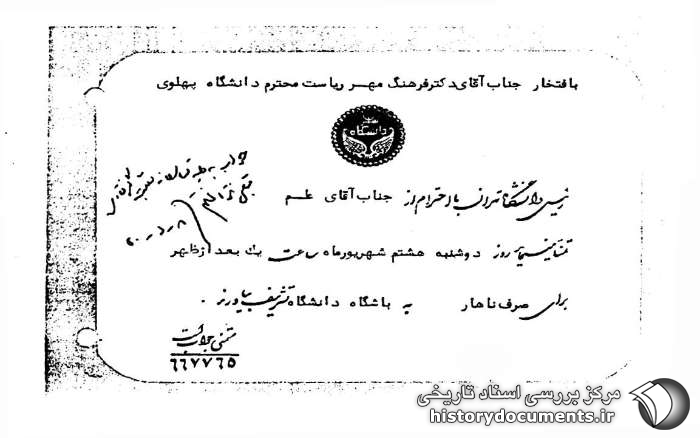 بافتخار جناب آقای دکتر فرهنگ مهر ریاست محترم دانشگاه پهلوی
دانشگاه
رئیس دانشگاه تهران با احترام از جناب آقای علم
تمنا مینماید روز دوشنبه هشتم شهریورماه ساعت یک بعد از ظهر
برای صرف ناهار به باشگاه دانشگاه تشریف بیاورند .
متمنی جواب است
۶۶۷۷۶۵
مرکز بررسی اسناد تاریخی
historydocuments.ir